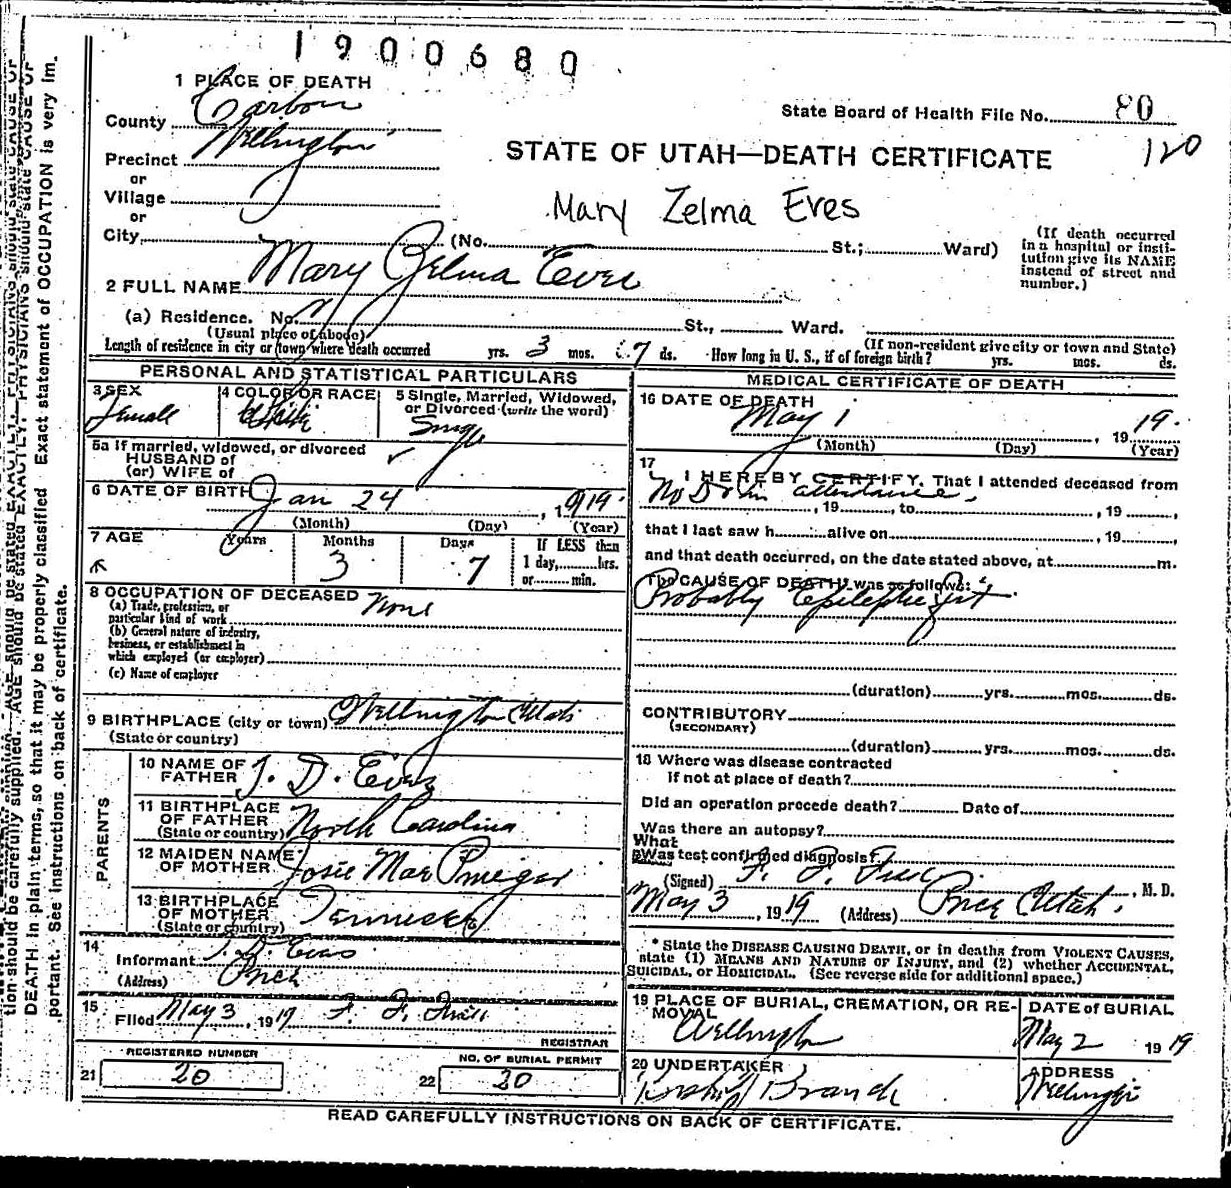 1900680
1 PLACE OF DEATH
County Carbon
State Board of Health File No. 80
120
Precinct Wellington
or
Village
or
STATE OF UTAH—DEATH CERTIFICATE
Mary Zelma Eves
City (No. St.; Ward)
(If death occurred
in a hospital or insti-
tution give its NAME
instead of street and
number.)
2 FULL NAME Mary Zelma Eves
(a) Residence. No. St., Ward.
(Usual place of abode) (If non-resident give city or town and State)
Length of residence in city or town where death occurred yrs. 3 mos. 7 ds. How long in U. S., if of foreign birth? yrs. mos. ds.
PERSONAL AND STATISTICAL PARTICULARS
3 SEX Female
4 COLOR OR RACE White
5 Single, Married, Widowed,
or Divorced (write the word)
Single
5a If married, widowed, or divorced
HUSBAND of
(or) WIFE of
6 DATE OF BIRTH Jan 24, 1919.
(Month) (Day) (Year)
7 AGE Years Months Days If LESS than
3 7 1 day, hrs.
or min.
8 OCCUPATION OF DECEASED None
(a) Trade, profession, or
particular kind of work
(b) General nature of industry,
business, or establishment in
which employed (or employer)
(c) Name of employer
9 BIRTHPLACE (city or town) Wellington Utah
(State or country)
PARENTS
10 NAME OF
FATHER J. D. Eves
11 BIRTHPLACE
OF FATHER
(State or country) North Carolina
12 MAIDEN NAME
OF MOTHER Josie Mae
13 BIRTHPLACE
OF MOTHER
(State or country) Tennessee
14
Informant J. D. Eves
(Address) Price
15
Filed May 3, 1919 F. F.
REGISTRAR
REGISTERED NUMBER
21 20
NO. OF BURIAL PERMIT
22 20
MEDICAL CERTIFICATE OF DEATH
16 DATE OF DEATH
May 1, 1919.
(Month) (Day) (Year)
17
I HEREBY CERTIFY, That I attended deceased from
No Dr in attendance, 19, to, 19,
that I last saw h alive on, 19,
and that death occurred, on the date stated above, at m.
The CAUSE OF DEATH* was as follows:
Probably Epileptic Fit
(duration) yrs. mos. ds.
CONTRIBUTORY
(SECONDARY)
(duration) yrs. mos. ds.
18 Where was disease contracted
if not at place of death?
Did an operation precede death? Date of
Was there an autopsy?
What
Was test confirmed diagnosis?
(Signed) F. F., M. D.
May 3, 1919 (Address) Price Utah.
* State the DISEASE CAUSING DEATH, or in deaths from VIOLENT CAUSES,
state (1) MEANS AND NATURE OF INJURY, and (2) whether ACCIDENTAL,
SUICIDAL, or HOMICIDAL. (See reverse side for additional space.)
19 PLACE OF BURIAL, CREMATION, OR RE-
MOVAL
Wellington
DATE OF BURIAL
May 2 1919
20 UNDERTAKER
Branch
ADDRESS
Wellington
READ CAREFULLY INSTRUCTIONS ON BACK OF CERTIFICATE.
tion should be carefully supplied. AGE should be stated EXACTLY. PHYSICIANS should state CAUSE OF
DEATH in plain terms, so that it may be properly classified. Exact statement of OCCUPATION is very im-
portant. See instructions on back of certificate.